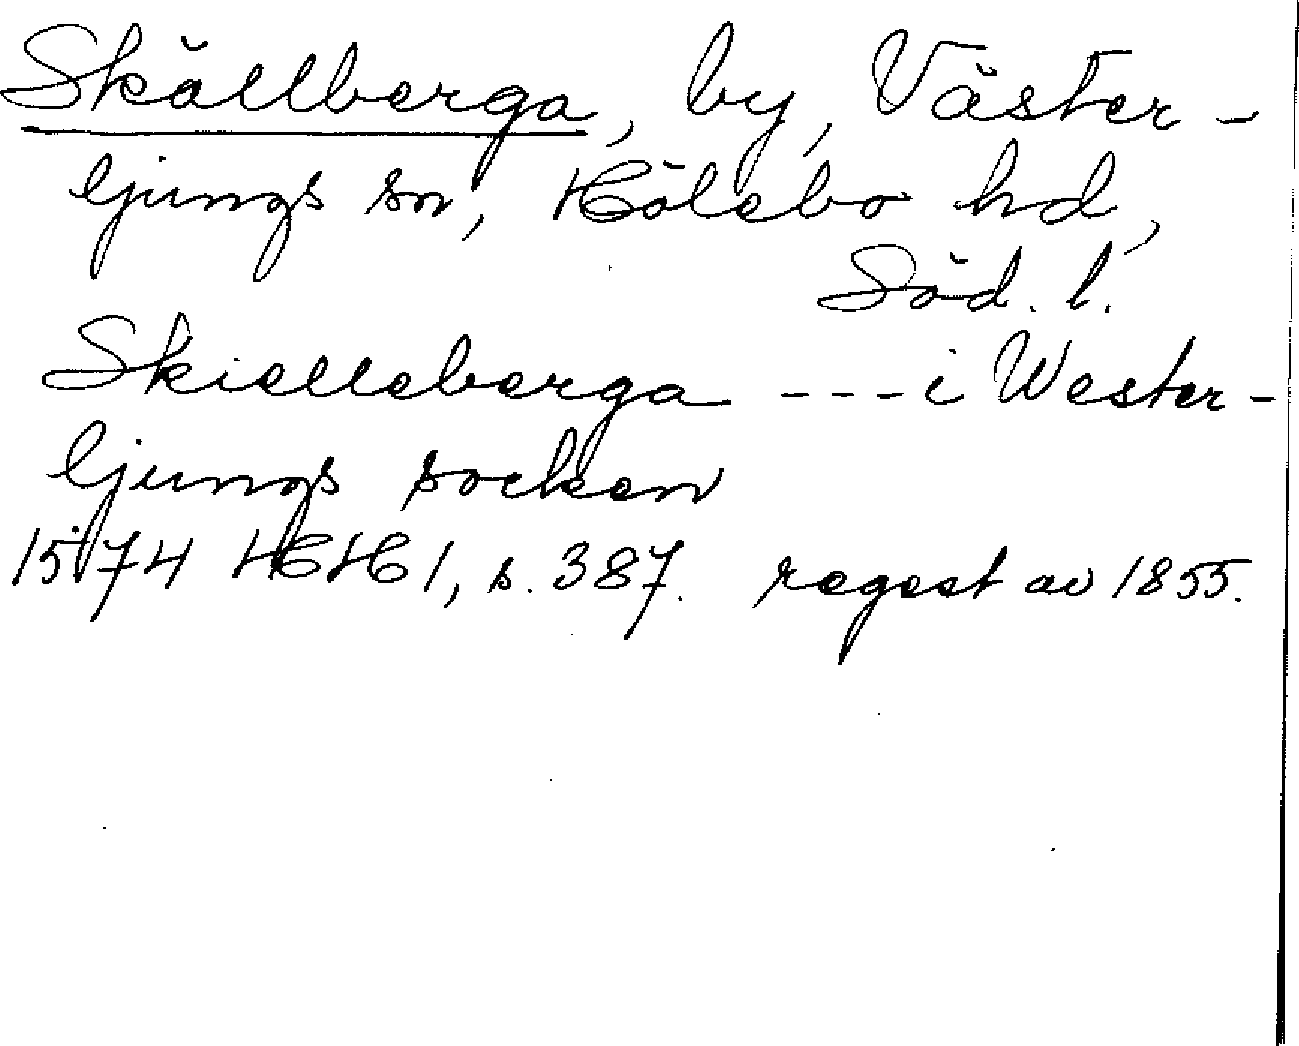 Skällberga, by, Väster-
ljungs sn, Hölebo hd,
Söd. l.
Skielleberga --- i Wester-
ljungs socken
1574 HH 1, s. 387. regest av 1855.